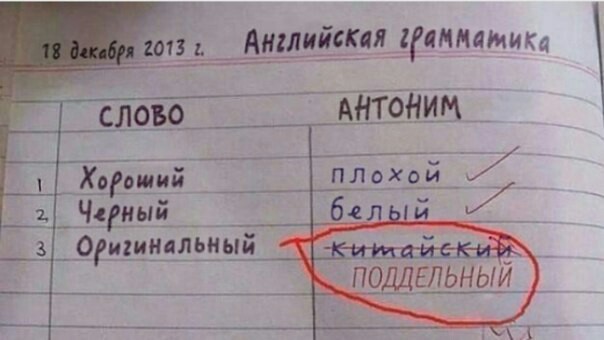 18 декабря 2013 г. Английская грамматика
СЛОВО АНТОНИМ
1 Хороший плохой
2 Черный белый
3 Оригинальный китайский
ПОДДЕЛЬНЫЙ